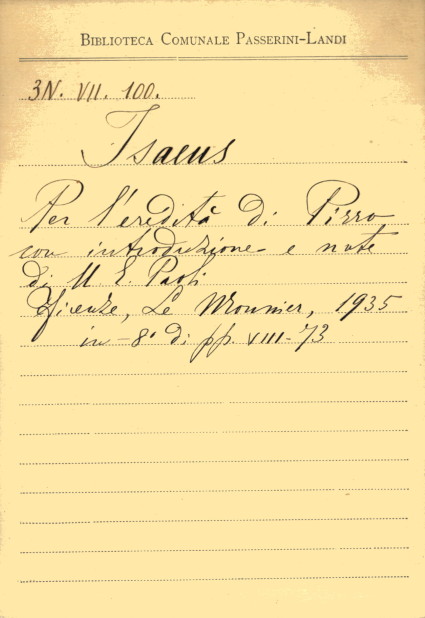 BIBLIOTECA COMUNALE PASSERINI-LANDI
3N. VII. 100.
Isaeus
Per l'eredità di Pirro
con introduzione e note
di U. E. Paoli
Firenze, Le Monnier, 1935
in-8° di pp. VIII-73